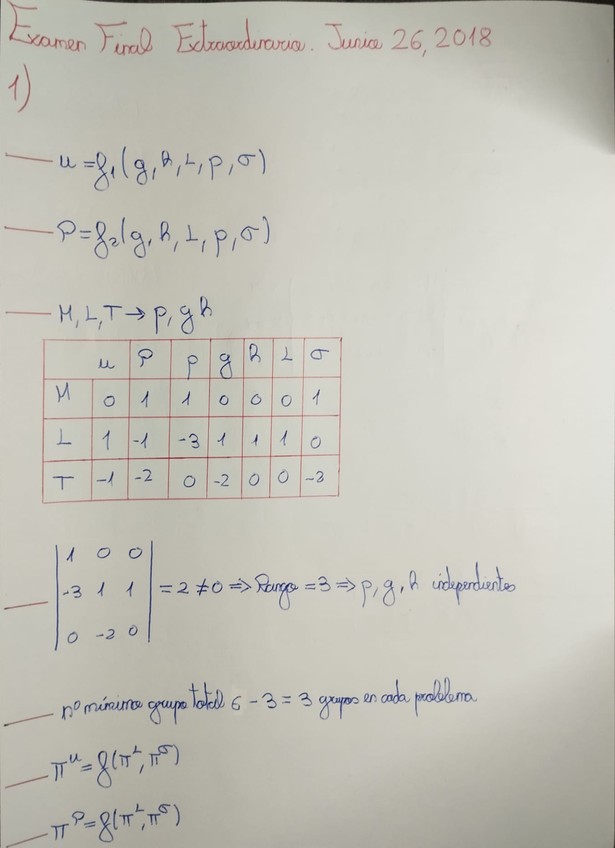 Examen Final Extraordinario. Junio 26, 2018
1)
u = f₁(g, h, L, ρ, σ)
P = f₂(g, h, L, ρ, σ)
M, L, T → ρ, g h
u P ρ g h L σ
M 0 1 1 0 0 0 1
L 1 -1 -3 1 1 1 0
T -1 -2 0 -2 0 0 -2
| 1 0 0 |
| -3 1 1 | = 2 ≠ 0 ⇒ Rango = 3 ⇒ ρ, g, h independientes
| 0 -2 0 |
nº mínimo grupo total 6 - 3 = 3 grupos en cada problema
π^u = f(π^L, π^σ)
π^P = f(π^L, π^σ)